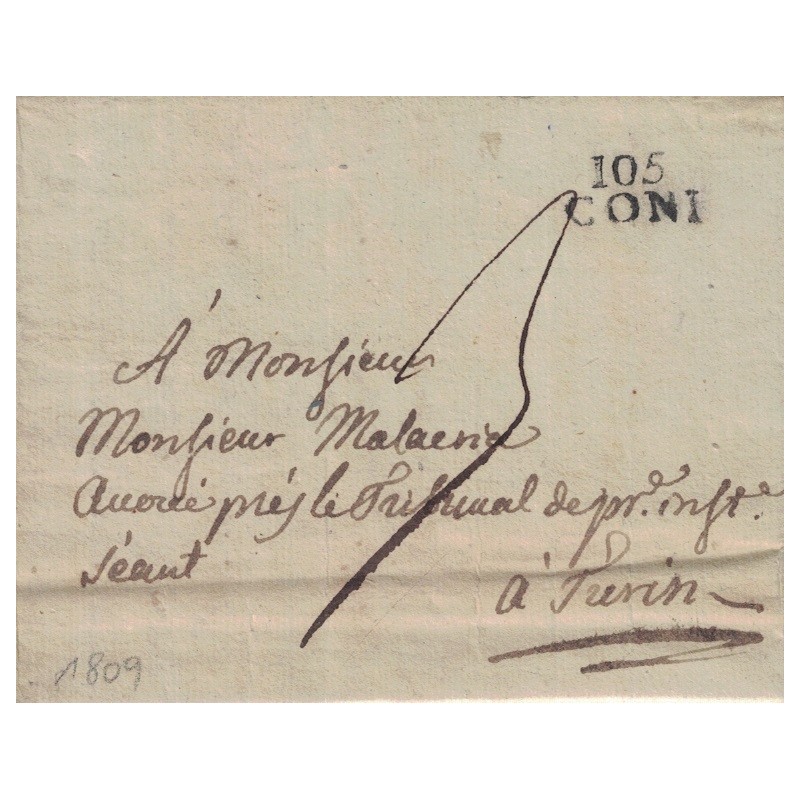 105
CONI
À Monsieur
Monsieur Malaeria
Avoué près le Tribunal de pr.e inst.e
séant
à Turin
1809